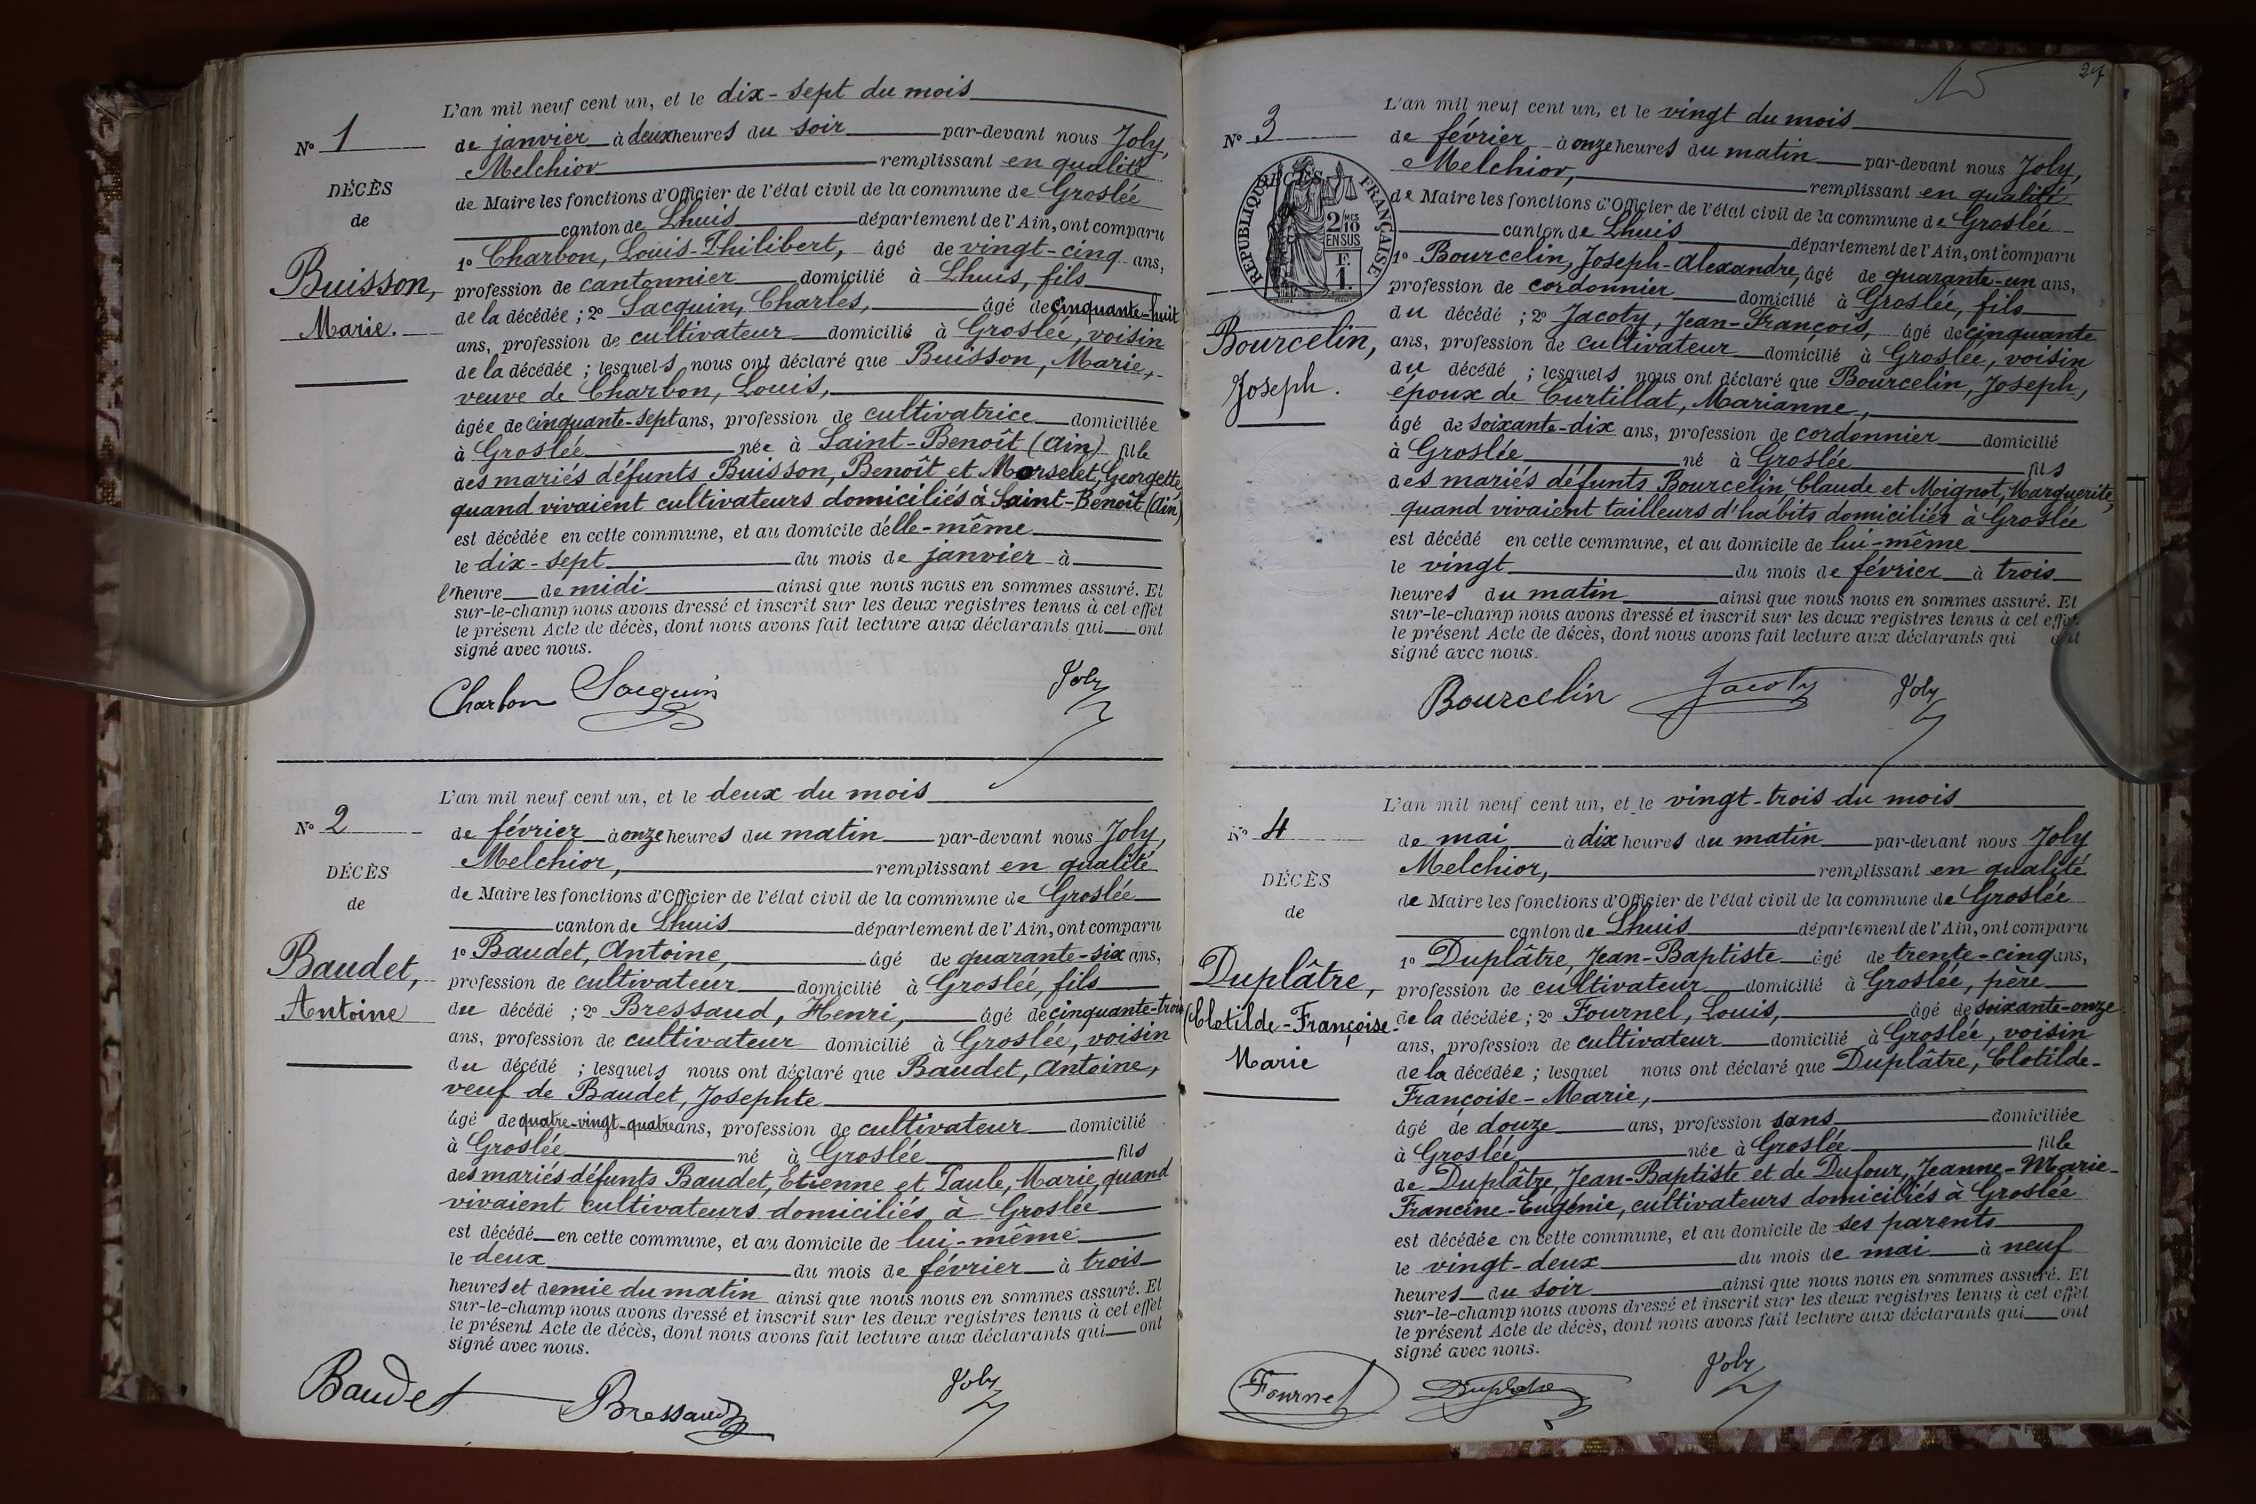 L'an mil neuf cent un, et le dix-sept du mois
N° 1
de janvier à deux heures du soir par-devant nous Joly,
Melchior remplissant en qualité
DÉCÈS
de Maire les fonctions d'Officier de l'état civil de la commune de Groslée
de
canton de Lhuis département de l'Ain, ont comparu
1° Charbon, Louis-Philibert, âgé de vingt-cinq ans,
Buisson,
profession de cantonnier domicilié à Lhuis, fils
de la décédée ; 2° Sacquin, Charles, âgé de cinquante-huit
Marie.
ans, profession de cultivateur domicilié à Groslée, voisin
de la décédée ; lesquels nous ont déclaré que Buisson, Marie,
veuve de Charbon, Louis,
âgée de cinquante-sept ans, profession de cultivatrice domiciliée
à Groslée née à Saint-Benoît (Ain) fille
des mariés défunts Buisson, Benoît et Morselet, Georgette,
quand vivaient cultivateurs domiciliés à Saint-Benoît (Ain)
est décédée en cette commune, et au domicile d'elle-même
le dix-sept du mois de janvier à
l'heure de midi ainsi que nous nous en sommes assuré. Et
sur-le-champ nous avons dressé et inscrit sur les deux registres tenus à cet effet
le présent Acte de décès, dont nous avons fait lecture aux déclarants qui ont
signé avec nous.
Charbon Sacquin Joly
L'an mil neuf cent un, et le deux du mois
N° 2
de février à onze heures du matin par-devant nous Joly,
Melchior, remplissant en qualité
DÉCÈS
de Maire les fonctions d'Officier de l'état civil de la commune de Groslée
de
canton de Lhuis département de l'Ain, ont comparu
1° Baudet, Antoine, âgé de quarante-six ans,
Baudet,
profession de cultivateur domicilié à Groslée, fils
Antoine
du décédé ; 2° Bressaud, Henri, âgé de cinquante-trois
ans, profession de cultivateur domicilié à Groslée, voisin
du décédé ; lesquels nous ont déclaré que Baudet, Antoine,
veuf de Baudet, Josephte
âgé de quatre-vingt-quatre ans, profession de cultivateur domicilié
à Groslée né à Groslée fils
des mariés défunts Baudet, Etienne et Paule, Marie, quand
vivaient cultivateurs domiciliés à Groslée
est décédé en cette commune, et au domicile de lui-même
le deux du mois de février à trois
heures et demie du matin ainsi que nous nous en sommes assuré. Et
sur-le-champ nous avons dressé et inscrit sur les deux registres tenus à cet effet
le présent Acte de décès, dont nous avons fait lecture aux déclarants qui ont
signé avec nous.
Baudet Bressaud Joly
15 27
L'an mil neuf cent un, et le vingt du mois
N° 3
de février à onze heures du matin par-devant nous Joly,
Melchior, remplissant en qualité
DÉCÈS
RÉPUBLIQUE FRANÇAISE
2/10 MES EN SUS
F. 1.
de Maire les fonctions d'Officier de l'état civil de la commune de Groslée
canton de Lhuis département de l'Ain, ont comparu
1° Bourcelin, Joseph-Alexandre, âgé de quarante-un ans,
profession de cordonnier domicilié à Groslée, fils
du décédé ; 2° Jacoty, Jean-François, âgé de cinquante
Bourcelin,
ans, profession de cultivateur domicilié à Groslée, voisin
du décédé ; lesquels nous ont déclaré que Bourcelin, Joseph,
Joseph.
époux de Curtillat, Marianne,
âgé de soixante-dix ans, profession de cordonnier domicilié
à Groslée né à Groslée fils
des mariés défunts Bourcelin, Claude et Moignot, Marguerite,
quand vivaient tailleurs d'habits domiciliés à Groslée
est décédé en cette commune, et au domicile de lui-même
le vingt du mois de février à trois
heures du matin ainsi que nous nous en sommes assuré. Et
sur-le-champ nous avons dressé et inscrit sur les deux registres tenus à cet effet
le présent Acte de décès, dont nous avons fait lecture aux déclarants qui ont
signé avec nous.
Bourcelin Jacoty Joly
L'an mil neuf cent un, et le vingt-trois du mois
N° 4
de mai à dix heures du matin par-devant nous Joly
Melchior, remplissant en qualité
DÉCÈS
de Maire les fonctions d'Officier de l'état civil de la commune de Groslée
de
canton de Lhuis département de l'Ain, ont comparu
1° Duplâtre, Jean-Baptiste âgé de trente-cinq ans,
Duplâtre,
profession de cultivateur domicilié à Groslée, père
Clotilde-Françoise-
de la décédée ; 2° Fournel, Louis, âgé de soixante-onze
Marie
ans, profession de cultivateur domicilié à Groslée, voisin
de la décédée ; lesquel nous ont déclaré que Duplâtre, Clotilde-
Françoise-Marie,
âgé de douze ans, profession sans domiciliée
à Groslée née à Groslée fille
de Duplâtre, Jean-Baptiste et de Dufour, Jeanne-Marie-
Francine-Eugénie, cultivateurs domiciliés à Groslée
est décédée en cette commune, et au domicile de ses parents
le vingt-deux du mois de mai à neuf
heures du soir ainsi que nous nous en sommes assuré. Et
sur-le-champ nous avons dressé et inscrit sur les deux registres tenus à cet effet
le présent Acte de décès, dont nous avons fait lecture aux déclarants qui ont
signé avec nous.
Fournel Duplatre Joly